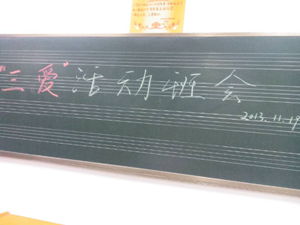 "三爱"活动班会
2013.11.19